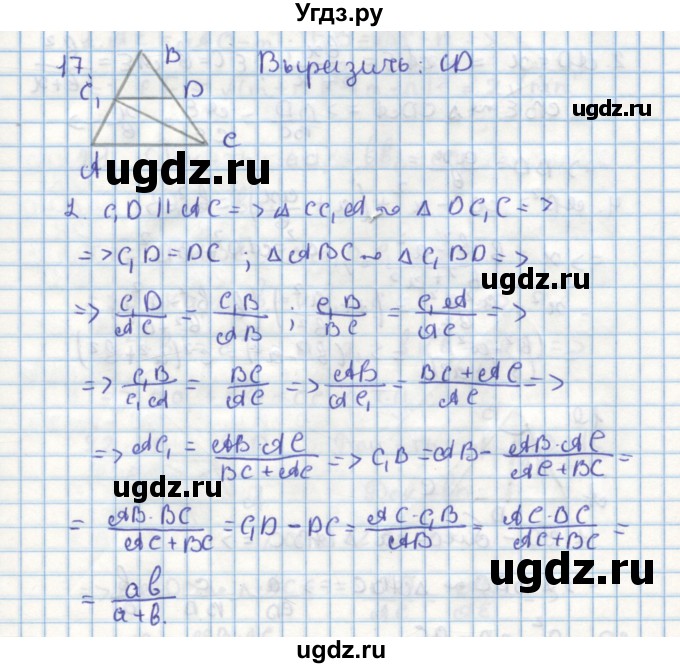 Угдз.ру
17. B Выразить: CD
C₁ D
A C
ugdz.ru
ugdz.ru
1. C₁D || AC => △ CC₁A ∾ △ DC₁C =>
=> C₁D = DC ; △ABC ∾ △C₁BD =>
ugdz.ru
=> C₁D/AC = C₁B/AB ; C₁B/BC = C₁A/AC =>
=> C₁B/C₁A = BC/AC => AB/AC₁ = BC+AC/AC =>
=> AC₁ = AB·AC/BC+AC => C₁B = AB - AB·AC/AC+BC =
ugdz.ru
= AB·BC/AC+BC = C₁D - DC = AC·C₁B/AB = AC·BC/AC+BC =
ugdz.ru
= ab/a+b.
ugdz.ru
ugdz.ru